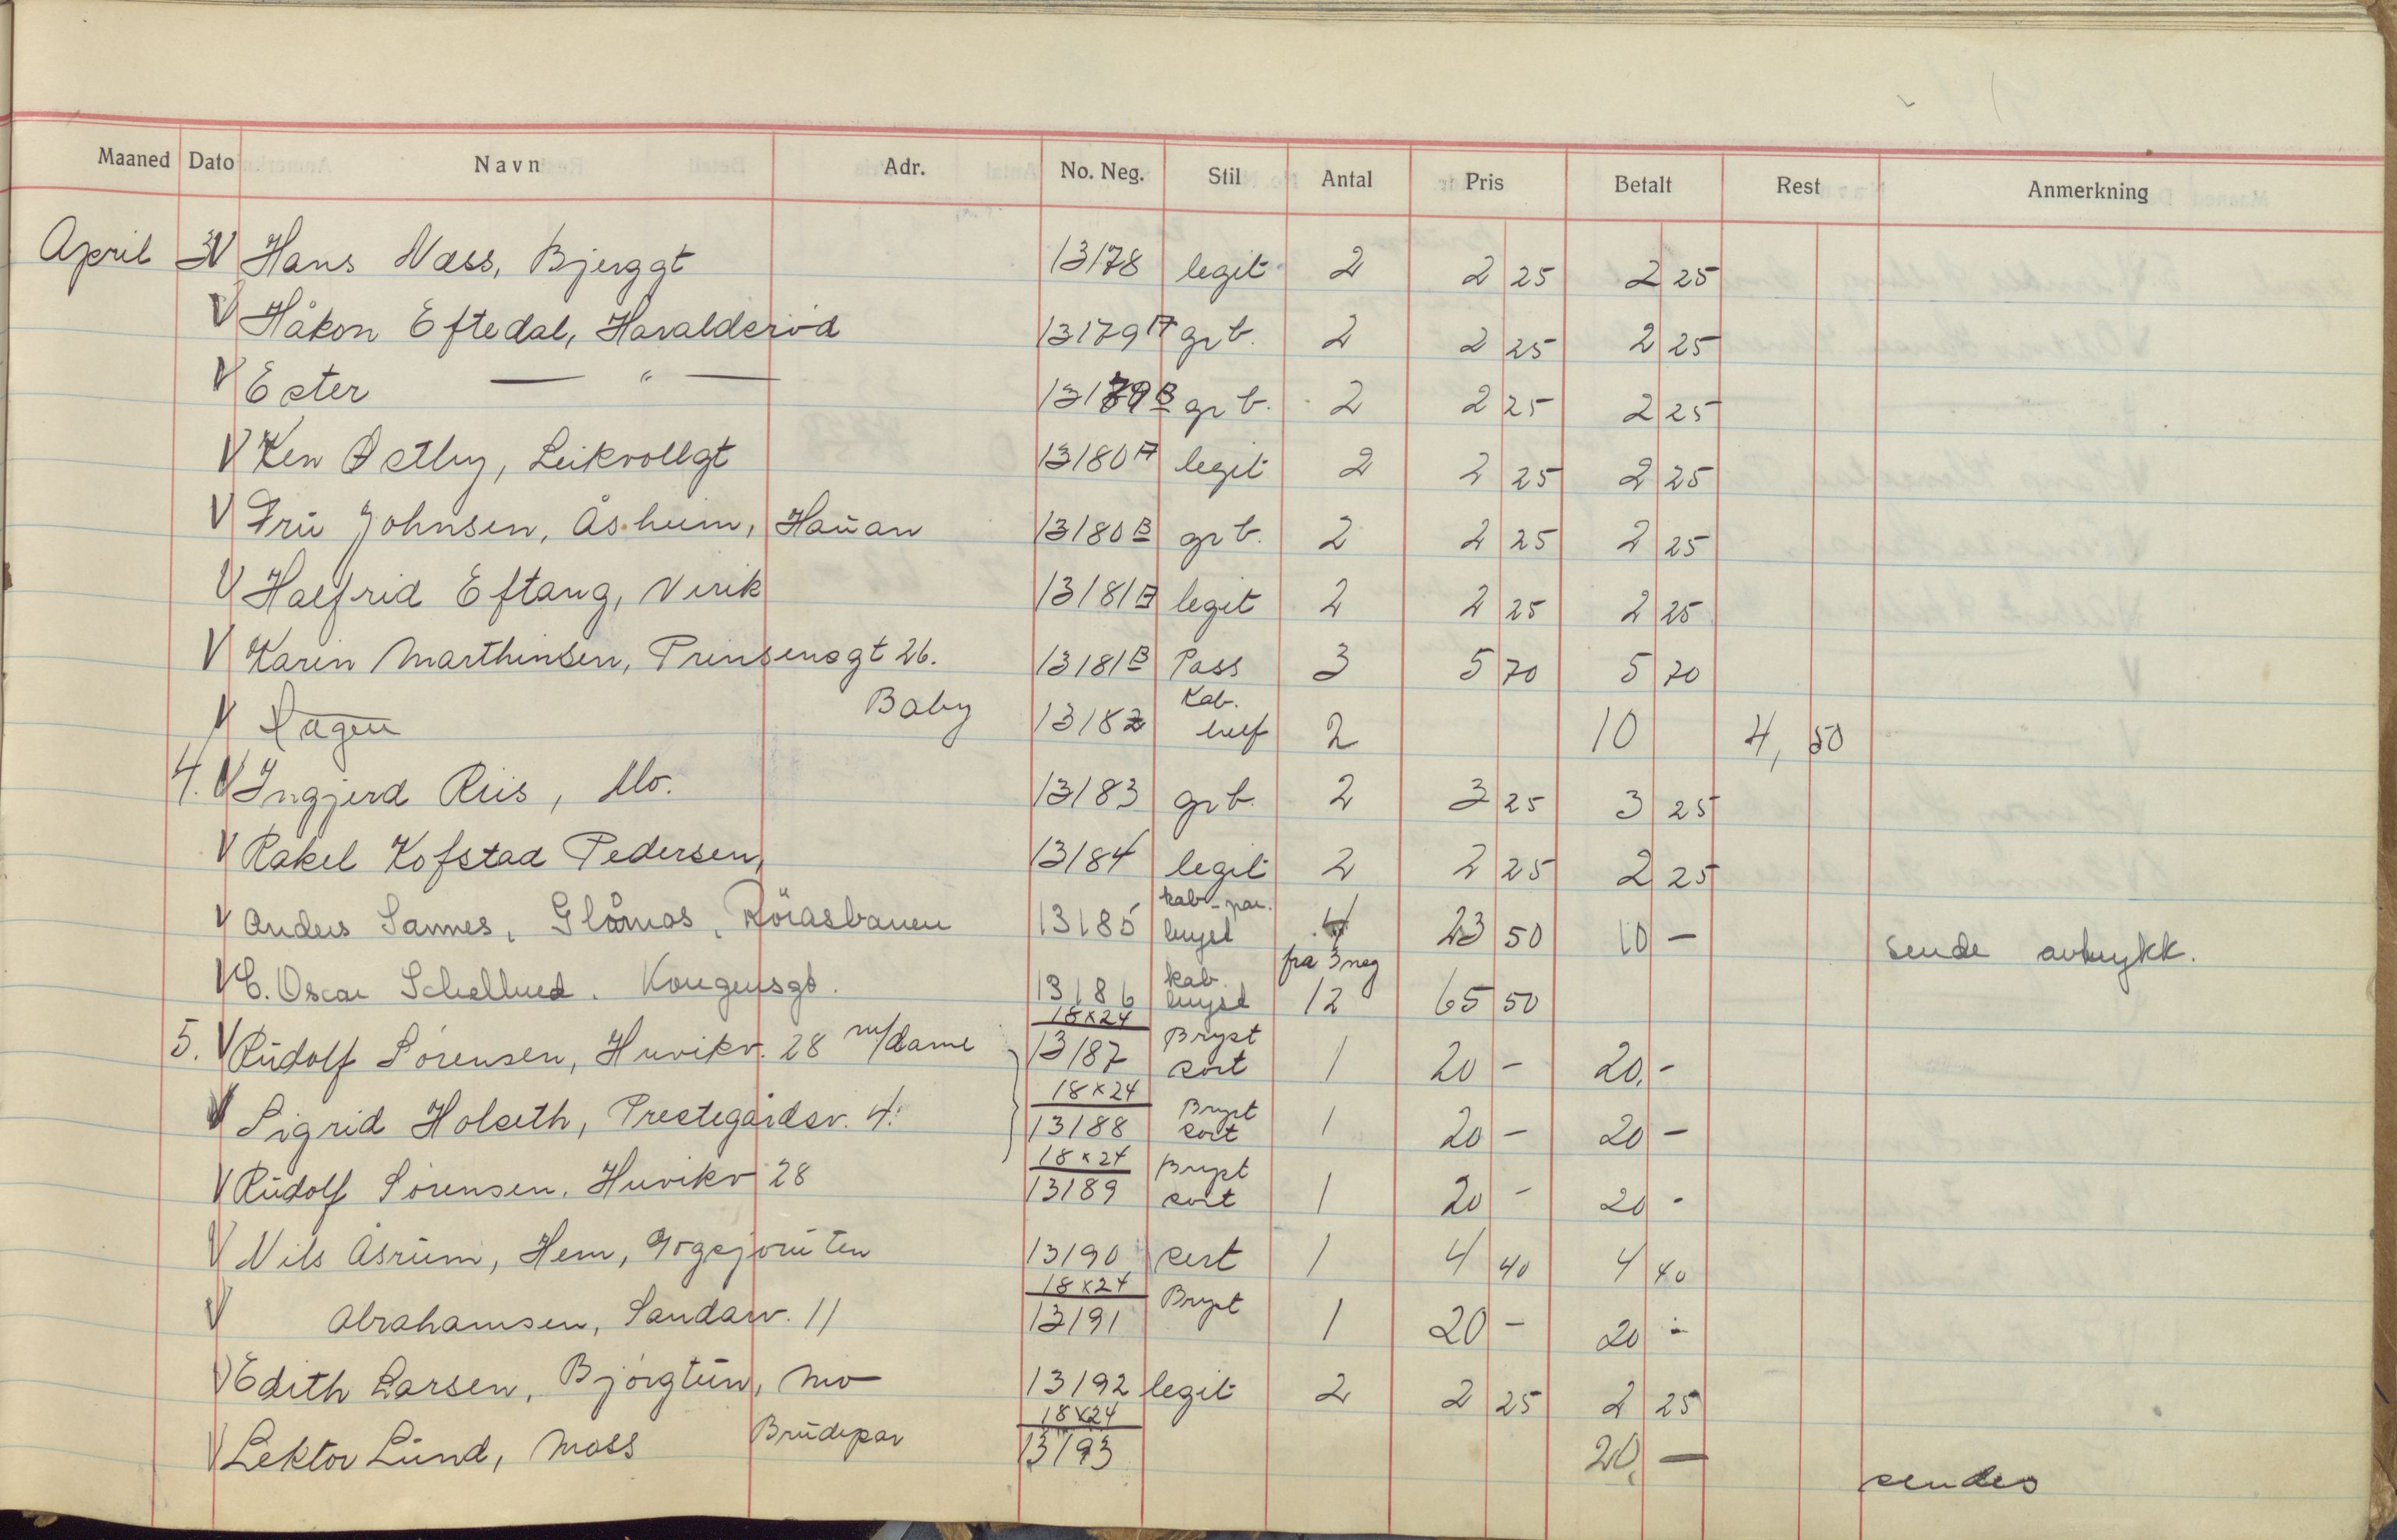 Maaned Dato Navn Adr. No. Neg. Stil Antal Pris Betalt Rest Anmerkning
April 3 V Hans Næss, Bjerggt 13178 legit 2 2 25 2 25
V Håkon Eftedal, Haralderöd 13179 A gr b. 2 2 25 2 25
V Ester — " — 13179 B gr b. 2 2 25 2 25
V Ken Østby, Leikvollgt 13180 A legit 2 2 25 2 25
V Frü Johnsen, Åsheim, Haüan 13180 B gr b. 2 2 25 2 25
V Halfrid Eftang, Virik 13181 legit 2 2 25 2 25
V Karin Marthinsen, Prinsensgt 26. 13181 B Pass 3 5 70 5 70
Kab.
V Baby 13182 2 10 4, 50
4. V Ingjerd Riis, Mo. 13183 gr b. 2 3 25 3 25
V Rakel Kofstad Pedersen, 13184 legit 2 2 25 2 25
V Anders Sannes, Glåmos, Rörasbanen 13185 4 23 50 10 —
sende avtrykk.
fra 3 neg
kab.
V C. Oscar Kongensgt. 13186 12 65 50
18x24 Bryst
5. V Rüdolf Sörensen, Huvikv. 28 m/dame 13187 sort 1 20 – 20.–
18x24 Bryst
V Sigrid Holseth, Prestegårdsv. 4. 13188 sort 1 20 – 20 –
18x24 Bryst
V Rüdolf Sörensen, Huvikv 28 13189 sort 1 20 – 20 -
V Nils Åsrüm, Hem, 13190 sort 1 4 40 4 40
18x24 Bryst
V Abrahamsen, Sandarv. 11 13191 1 20 – 20 -
V Edith Larsen, Björgtün, Mo 13192 legit 2 2 25 2 25
18x24
V Lektor Lünd, Moss Brüdepar 13193 20, —
sendes